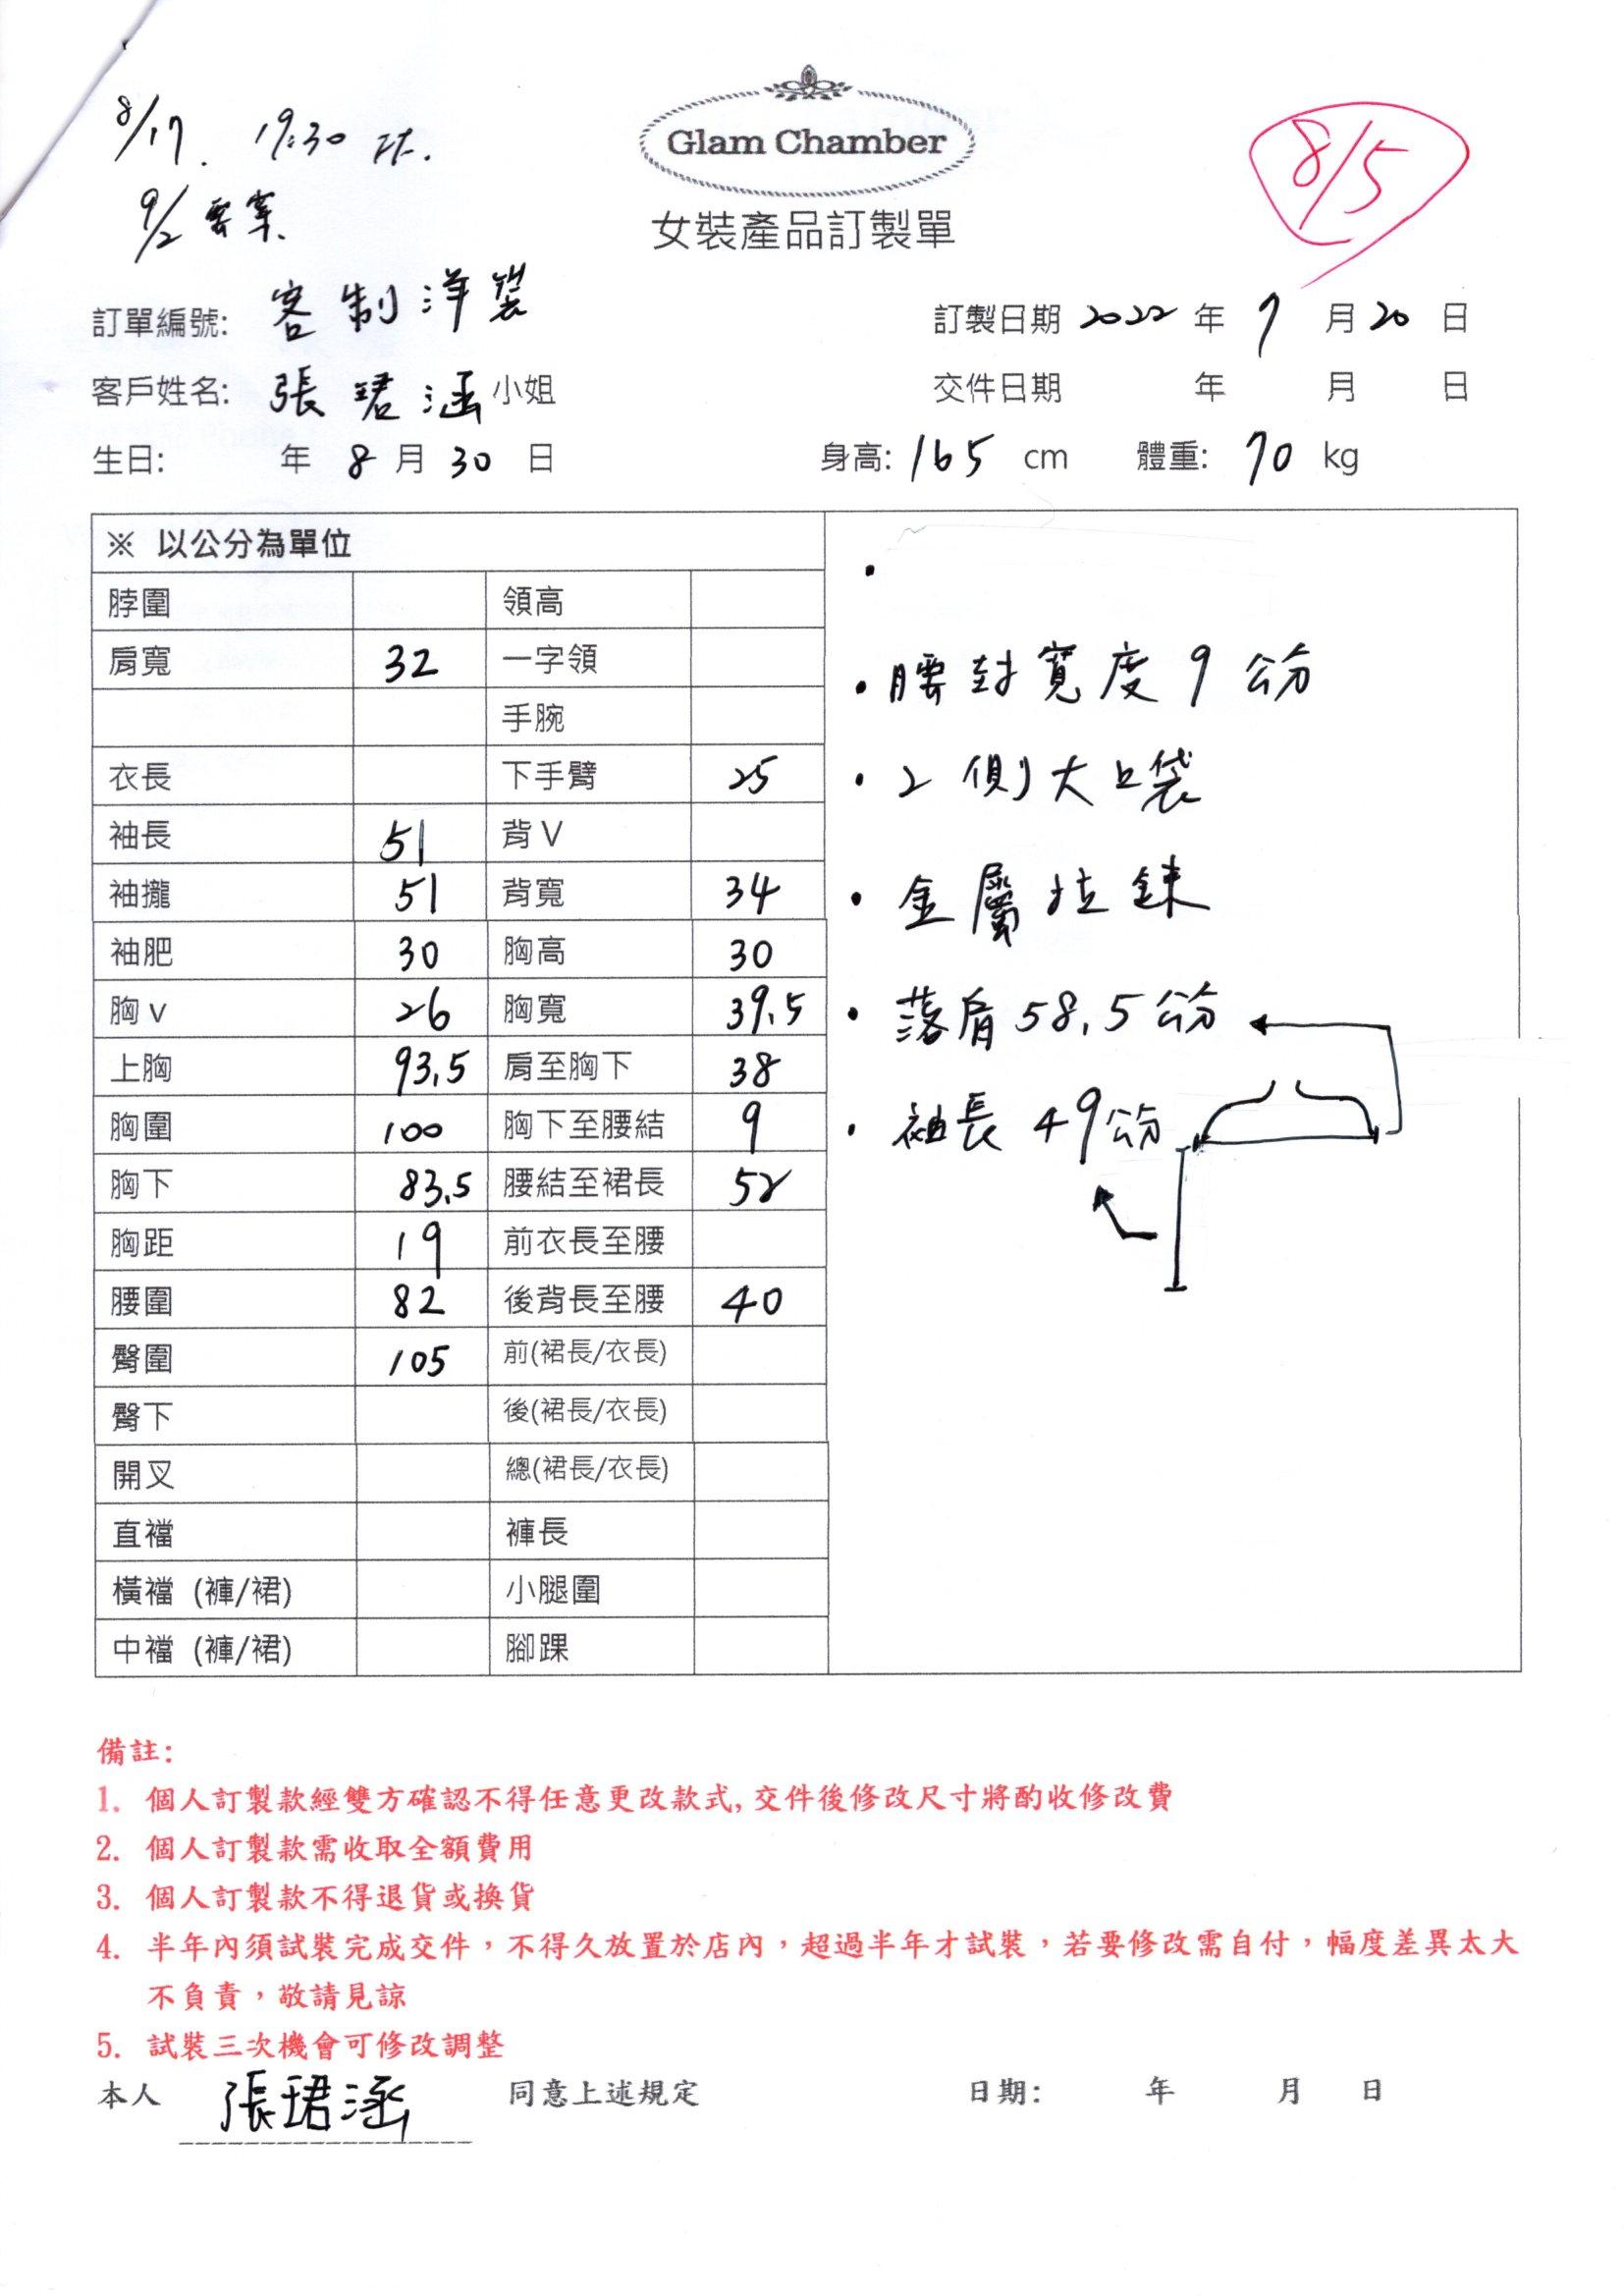 8/17. 19:30 试.
9/2 要拿.
Glam Chamber
8/5
女裝產品訂製單
訂單編號: 客制洋裝
訂製日期 2022 年 7 月 20 日
客戶姓名: 張珺涵 小姐
交件日期 年 月 日
生日: 年 8 月 30 日
身高: 165 cm 體重: 70 kg
※ 以公分為單位
脖圍 領高
肩寬 32 一字領
手腕
衣長 下手臂 25
袖長 51 背V
袖攏 51 背寬 34
袖肥 30 胸高 30
胸v 26 胸寬 39.5
上胸 93.5 肩至胸下 38
胸圍 100 胸下至腰結 9
胸下 83.5 腰結至裙長 52
胸距 19 前衣長至腰
腰圍 82 後背長至腰 40
臀圍 105 前(裙長/衣長)
臀下 後(裙長/衣長)
開叉 總(裙長/衣長)
直襠 褲長
橫襠 (褲/裙) 小腿圍
中襠 (褲/裙) 腳踝
•
• 腰封寬度 9 公分
• 2側大口袋
• 金屬拉鍊
• 落肩 58.5 公分
• 袖長 49 公分
備註:
1. 個人訂製款經雙方確認不得任意更改款式,交件後修改尺寸將酌收修改費
2. 個人訂製款需收取全額費用
3. 個人訂製款不得退貨或換貨
4. 半年內須試裝完成交件，不得久放置於店內，超過半年才試裝，若要修改需自付，幅度差異太大
不負責，敬請見諒
5. 試裝三次機會可修改調整
本人 張珺涵 同意上述規定 日期: 年 月 日